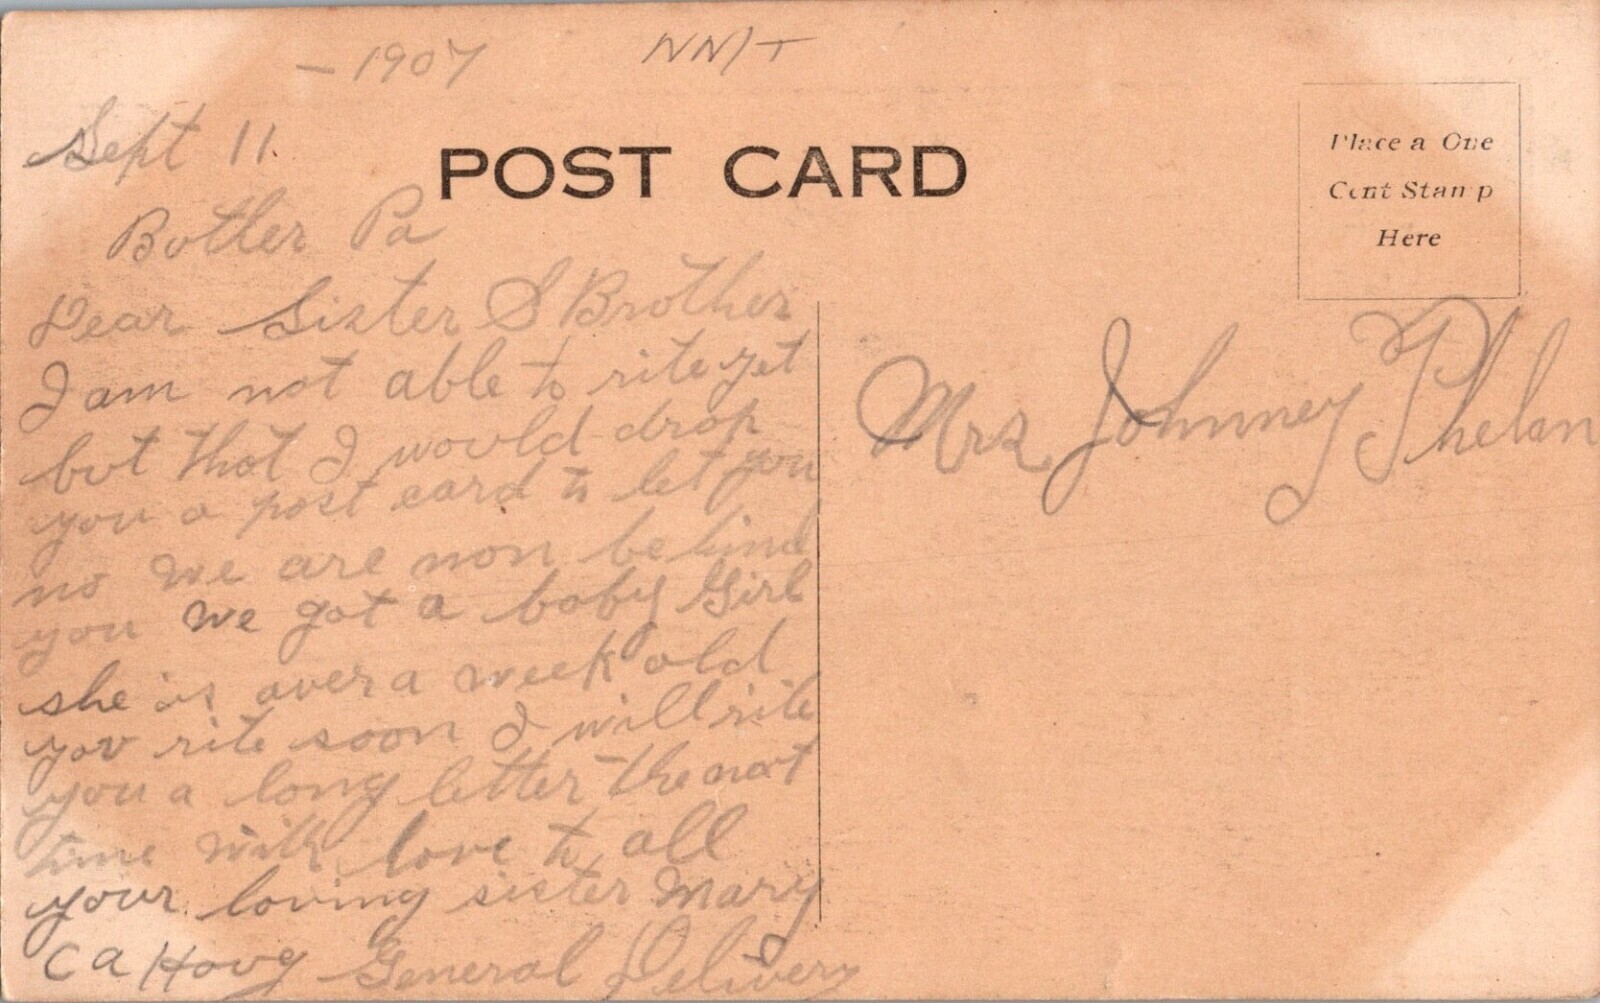 - 1907
NN/T
Sept 11.
POST CARD
Place a One
Cent Stamp
Here
Botler Pa
Dear Sister & Brother
I am not able to rite yet
but that I would drop
you a post card to let you
no we are non behind
you we got a baby Girl
she is over a week old
you rite soon I will rite
you a long letter the next
time with love to all
your loving sister Mary
C A General Delivery
Mrs Johnney Phelan